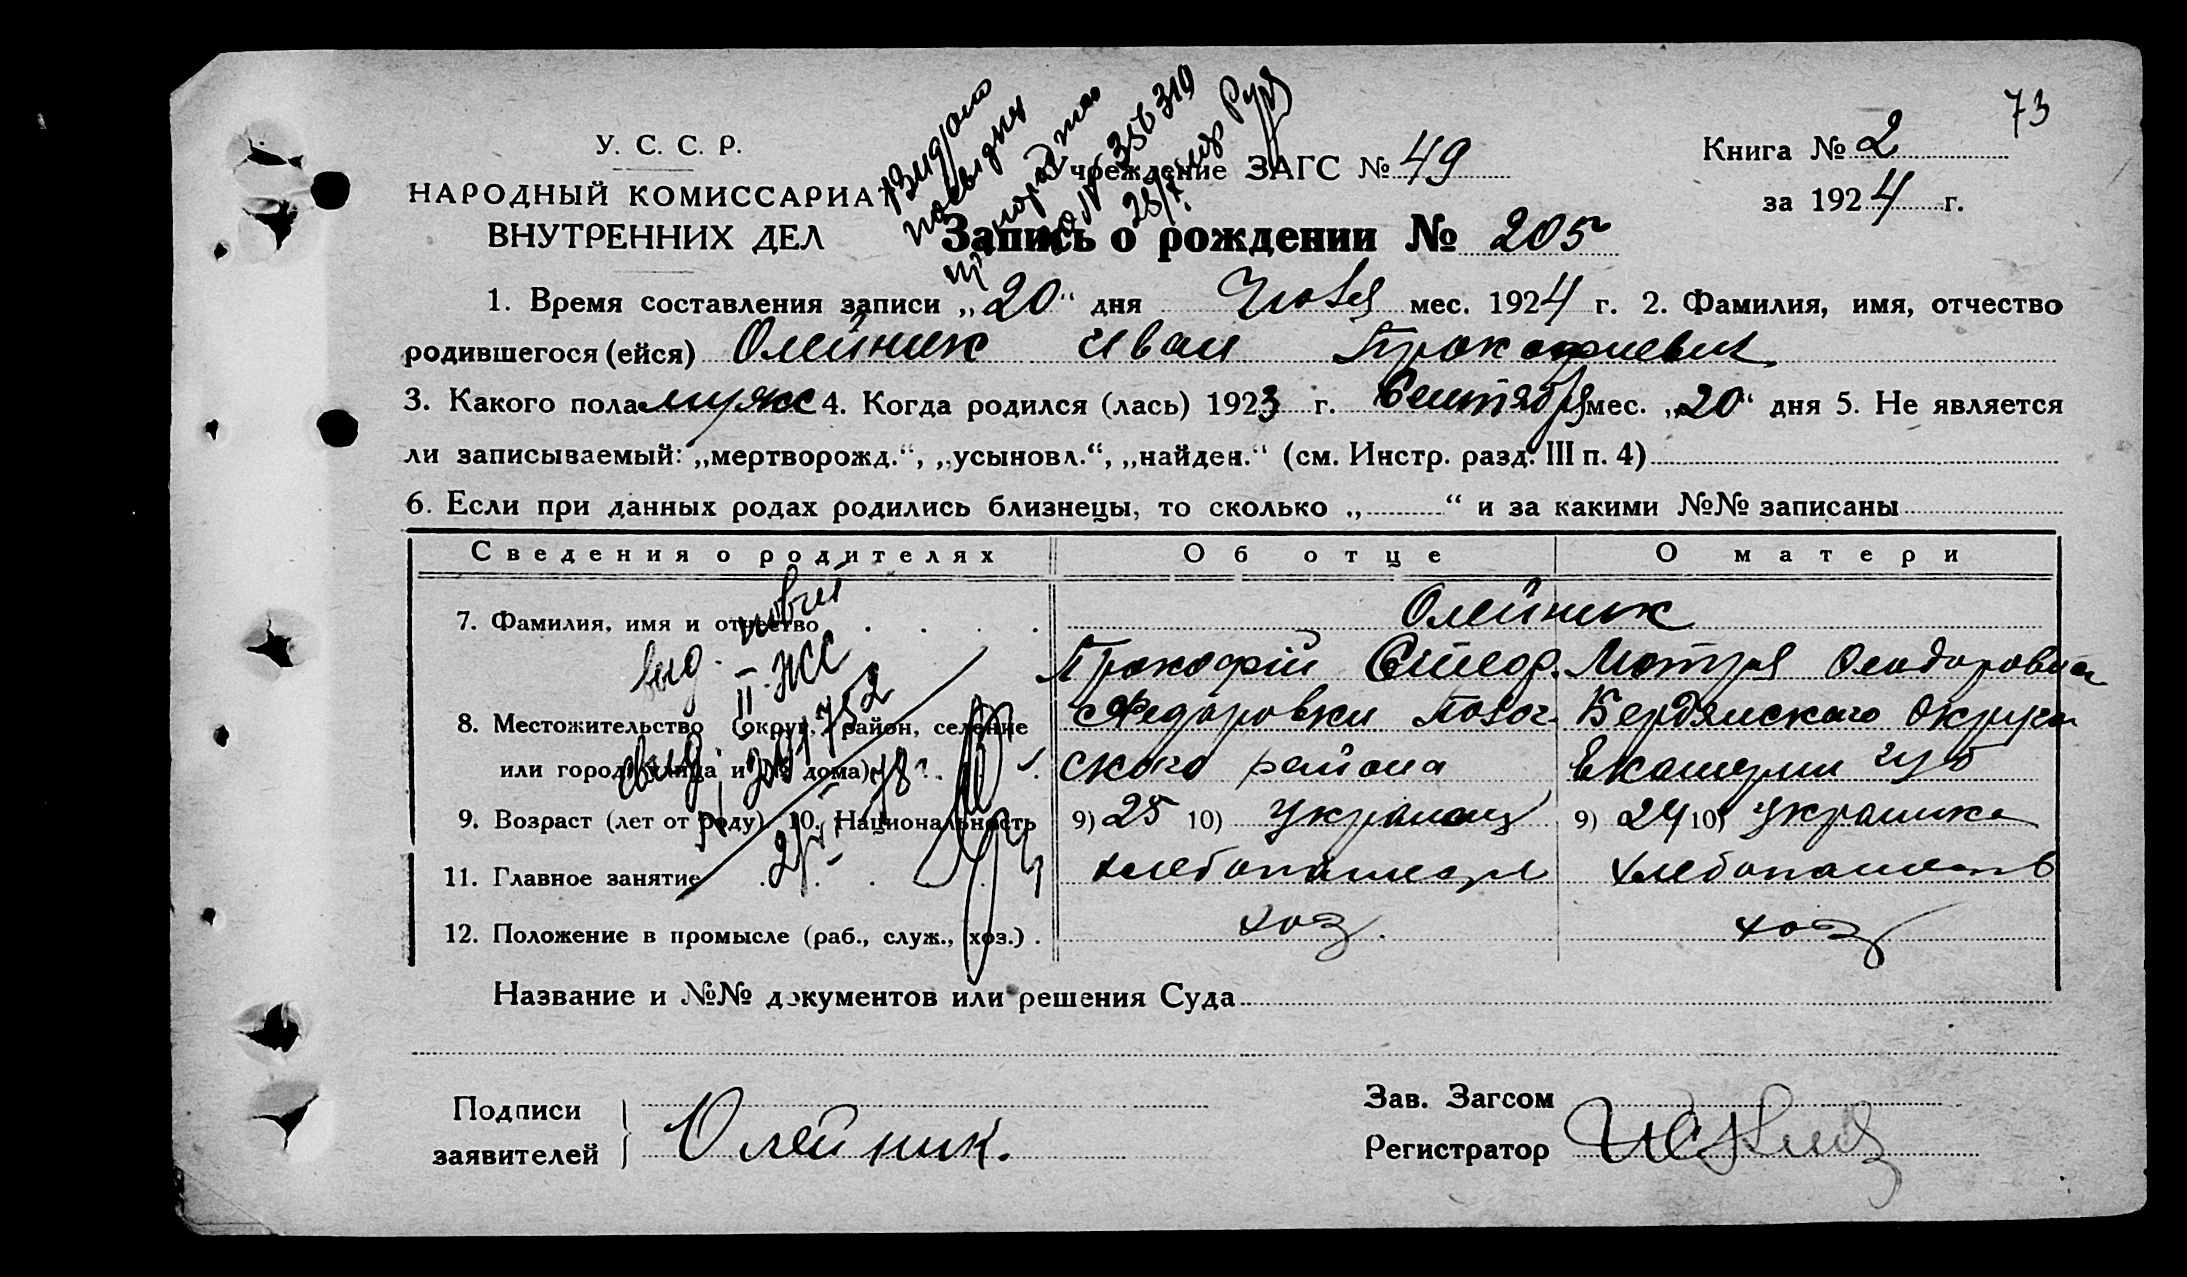 73
У. С. С. Р.
НАРОДНЫЙ КОМИССАРИАТ
ВНУТРЕННИХ ДЕЛ
Учреждение ЗАГС № 49
Книга № 2
за 1924 г.
Запись о рождении № 205
1. Время составления записи „20“ дня мес. 1924 г. 2. Фамилия, имя, отчество
родившегося (ейся) Олейник Иван Прокофиевич
3. Какого пола мужс 4. Когда родился (лась) 1923 г. Сентября мес. „20“ дня 5. Не является
ли записываемый: „мертворожд.“, „усыновл.“, „найден.“ (см. Инстр. разд. III п. 4)
6. Если при данных родах родились близнецы, то сколько „ “ и за какими №№ записаны
Сведения о родителях Об отце О матери
7. Фамилия, имя и отчество Олейник
Прокофій Мотря
8. Местожительство (округ, район, селение Федоровки Бердянского Округа
или город, улица и № дома) ского района Екатерин губ
9. Возраст (лет от роду) 10. Национальность 9) 25 10) украинец 9) 24 10) украинка
11. Главное занятие
12. Положение в промысле (раб., служ., хоз.) хоз. хоз
Название и №№ документов или решения Суда
Подписи
заявителей Олейник.
Зав. Загсом
Регистратор